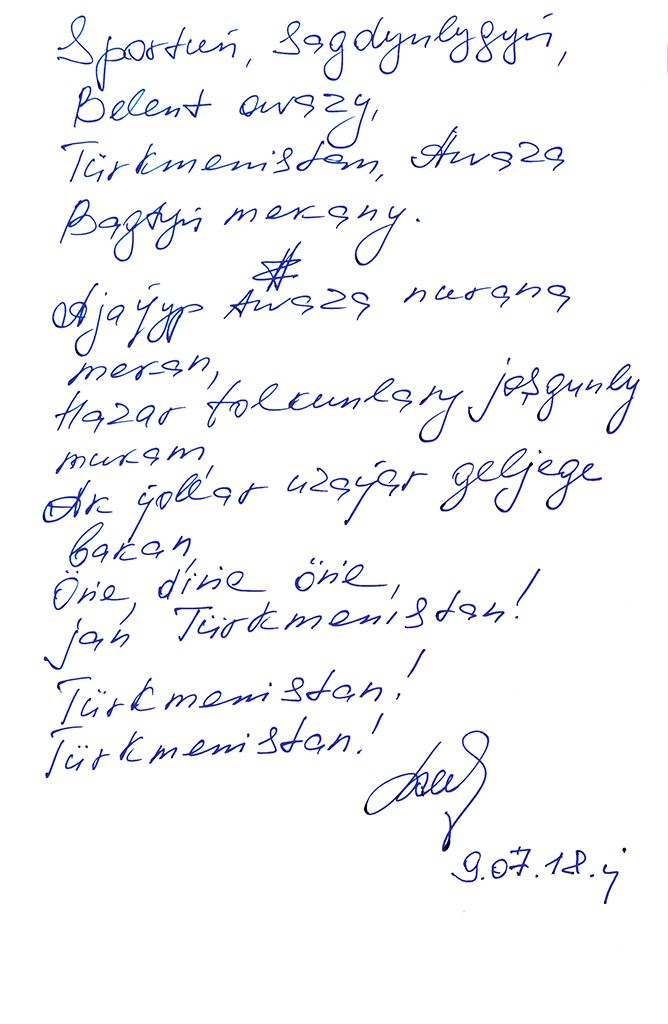 Sportuň, sagdynlygyň,
Belent owazy,
Türkmenistan, Awaza
Bagtyň mekany.
Ajaýyp Awaza nurana
mekan,
Hazar tolkunlary joşgunly
mukam,
Ak ýollar uzaýar geljege
bakan,
Öňe, diňe öňe,
jan Türkmenistan!
Türkmenistan!
Türkmenistan!
9.07.18.ý